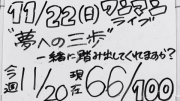 11/22(日)ワンマンライブ
"夢への三歩"
一緒に踏み出してくれますか?
今週11/20 現在66/100